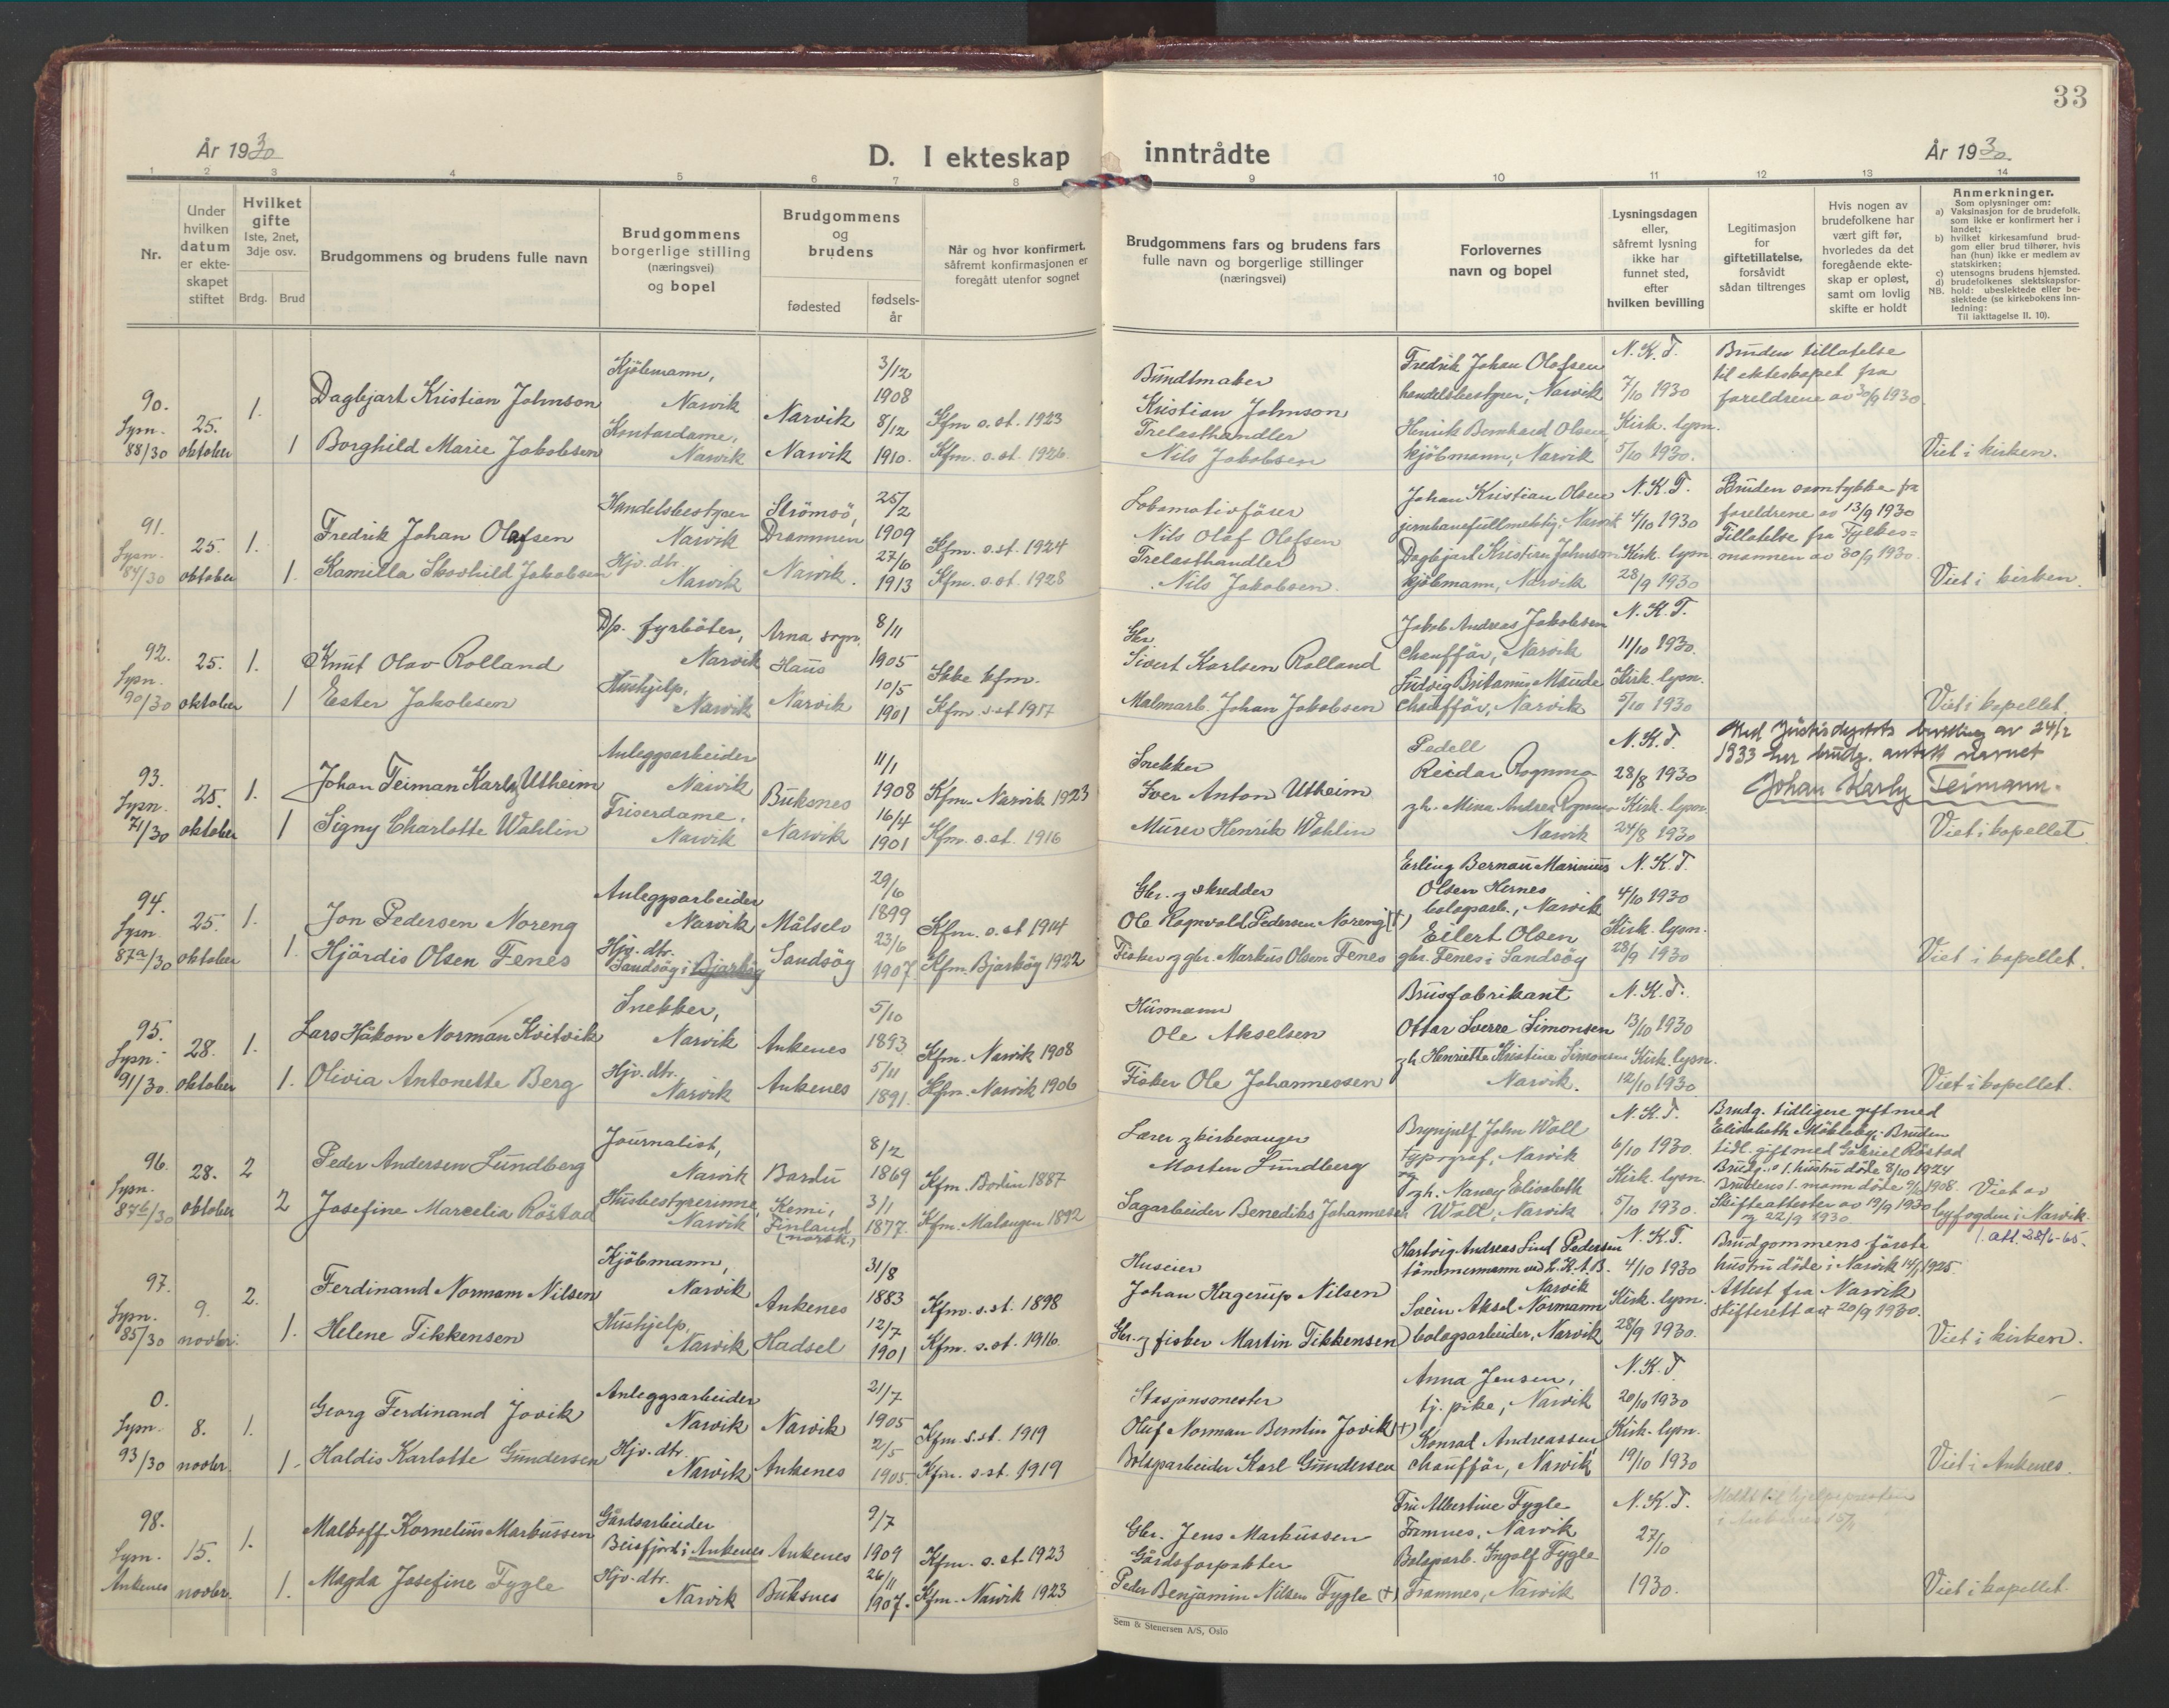 33
År 1930
D. I ekteskap inntrådte
År 1930
1 2 3 4 5 6 7 8 9 10 11 12 13 14
Nr.
Under hvilken datum er ekteskapet stiftet
Hvilket gifte
1ste, 2net, 3dje osv.
Brdg. Brud
Brudgommens og brudens fulle navn
Brudgommens borgerlige stilling (næringsvei) og bopel
Brudgommens og brudens
fødested
fødselsår
Når og hvor konfirmert, såfremt konfirmasjonen er foregått utenfor sognet
Brudgommens fars og brudens fars fulle navn og borgerlige stillinger (næringsvei)
Forlovernes navn og bopel
Lysningsdagen eller, såfremt lysning ikke har funnet sted, efter hvilken bevilling
Legitimasjon for giftetillatelse, forsåvidt sådan tiltrenges
Hvis nogen av brudefolkene har vært gift før, hvorledes da det foregående ekteskap er opløst, samt om lovlig skifte er holdt
Anmerkninger.
Som oplysninger om:
a) Vaksinasjon for de brudefolk, som ikke er konfirmert her i landet;
b) hvilket kirkesamfund brudgom eller brud tilhører, hvis han (hun) ikke er medlem av statskirken;
c) utensogns brudens hjemsted.
d) brudefolkenes slektskapsforhold: ubeslektede eller beslektede (se kirkebokens innledning:
NB. Til iakttagelse II, 10).
90. Lysn. 88/30
25. oktober
1. Dagbjart Kristian Johnson
Kjöbmann, Narvik
Narvik
3/12 1908
Kfm s. st. 1923
Bundtmaker Kristian Johnson
Fredrik Johan Olafsen handelsbestyrer, Narvik
N.K.T. 7/10 1930
Bruden tillatelse til ekteskapet fra foreldrene av 30/9 1930.
1 Borghild Marie Jakobsen
Kontordame, Narvik
Narvik
8/12 1910.
Kfm. s. st. 1926
Trelasthandler Nils Jakobsen
Henrik Bernhard Olsen, kjöbmann, Narvik
Kirk. lysn. 5/10 1930.
Viet i kirken.
91. Lysn. 84/30
25. oktober
1. Fredrik Johan Olafsen
Handelsbestyrer Narvik
Strömsö, Drammen
25/2 1909
Kfm. s. st. 1924
Lokomotivförer Nils Olaf Olafsen
Johan Kristian Olsen jernbanefullmektig, Narvik
N.K.T. 4/10 1930
Bruden samtykke fra foreldrene av 13/9 1930
Tillatelse fra Fylkesmannen av 30/9 1930.
1. Kamilla Skovhild Jakobsen
Hjv. dtr. Narvik
Narvik.
27/6 1913
Kfm. s. st. 1928
Trelasthandler Nils Jakobsen.
Dagbjart Kristian Johnson kjöbmann, Narvik
Kirk. lysn. 28/9 1930
Viet i kirken.
92. Lysn. 90/30
25. oktober
1. Knut Olav Rolland
D/s. fyrböter, Narvik
Arna sogn, Haus
8/11 1905
Ikke kfm.
Gbr. Sivert Karlsen Rolland
Jakob Andreas Jakobsen chaufför, Narvik
N.K.T. 11/10 1930.
1 Ester Jakobsen
Hushjelp, Narvik
Narvik
10/5 1901
Kfm. s. st 1917
Malmarb. Johan Jakobsen
Ludvig Britanus Maude chaufför, Narvik
Kirk. lysn. 5/10 1930
Viet i kapellet.
93. Lysn. 71/30
25. oktober
1. Johan Teiman Karly Utheim
Anleggsarbeider Narvik
Buksnes
11/1 1908
Kfm. Narvik 1923
Snekker Iver Anton Utheim
Pedell Reidar Rognmo
N.K.T. 28/8 1930
Med Justisdeptets bevilling av 24/2 1933 har brudg. antatt navnet
Johan Karly Teimann.
1 Signy Charlotte Wahlin
Friserdame, Narvik
Narvik
16/4 1901
Kfm. s. st. 1916
Murer Henrik Wahlin
gh. Mina Andrea Rognmo Narvik
Kirk. lysn. 24/8 1930
Viet i kapellet
94. Lysn. 87a/30
25. oktober
1. Jon Pedersen Noreng
Anleggsarbeider Narvik
Målselv
29/6 1899
Kfm. s. st 1914
Gbr. og skredder Ole Ragnvald Pedersen Noreng (†)
Erling Bernau Marinius Olsen Hernes bolagsarb., Narvik
N.K.T. 4/10 1930
1. Hjördis Olsen Fenes
Hjv. dtr. Sandsöy i Bjarköy
Sandsöy
23/6 1907.
Kfm. Bjarköy 1922
Fisker og gbr. Markus Olsen Fenes
Eilert Olsen gbr. Fenes i Sandsöy
Kirk. lysn. 28/9 1930
Viet i kapellet.
95. Lysn. 91/30.
28. oktober
1. Lars Håkon Norman Kvitvik
Snekker, Narvik
Ankenes
5/10 1893
Kfm. Narvik 1908
Husmann Ole Akselsen
Brusfabrikant Ottar Sverre Simonsen
N.K.T. 13/10 1930
1. Olivia Antonette Berg
Hjv. dtr. Narvik
Ankenes
5/11 1891.
Kfm. Narvik 1906
Fisker Ole Johannessen
gh Henriette Kristine Simonsen Narvik.
Kirk. lysn. 12/10 1930
Viet i kapellet.
96. Lysn. 87b/30
28. oktober
2 Peder Andersen Lundberg
Journalist, Narvik
Bardu
8/2 1869
Kfm. Bodin 1887
Lærer og kirkesanger Morten Lundberg
Brynjulf John Woll typograf, Narvik
N.K.T. 6/10 1930.
Brudg. tidligere gift med Elisabeth Möklebý. Bruden tidl. gift med Gabriel Röstad
Brudg.s 1. hustru döde 8/10 1924
Brudens 1. mann döde 9/10 1908.
Skifteattester av 19/9 1930 og 22/9 1930
2 Josefine Marcelia Röstad
Husbestyrerinne, Narvik
Kemi, Finland (norsk)
3/1 1877.
Kfm. Malangen 1892
Sagarbeider Benediks Johannesen
og gh. Nanny Elisabeth Woll, Narvik
Kirk. lysn. 5/10 1930.
Viet av byfogden i Narvik.
1 att. 28/6-65.
97. Lysn. 85/30
9. novbr.
2. Ferdinand Normann Nilsen
Kjöbmann, Narvik
Ankenes
31/8 1883
Kfm. s. st. 1898
Huseier Johan Hagerup Nilsen
Hartvig Andreas Lind Pedersen tömmermann ved L.K.A.B. Narvik
N.K.T. 4/10 1930
Brudgommens förste hustru döde i Narvik 14/1 1925.
Attest fra Narvik skifterett av 20/9 1930.
1. Helene Tikkensen
Hushjelp, Narvik
Hadsel
12/7 1901
Kfm. s. st. 1916
Gbr. og fisker Martin Tikkensen
Svein Aksel Normann bolagsarbeider, Narvik
Kirk. lysn. 28/9 1930.
Viet i kirken.
0. Lysn. 93/30
8. novbr.
1. Georg Ferdinand Jovik
Anleggsarbeider Narvik
Narvik
21/7 1905
Kfm. s. st. 1919
Stasjonsmester Oluf Norman Berntin Jovik (†)
Anna Jensen, tj. pike, Narvik
N.K.T. 20/10 1930
1. Haldis Karlotte Gundersen
Hjv. dtr. Narvik
Ankenes
2/5 1905
Kfm. s. st. 1919
Bolagsarbeider Karl Gundersen
Konrad Andreassen chaufför, Narvik
Kirk. lysn. 19/10 1930
Viet i Ankenes.
98. Lysn. Ankenes
15. novbr.
1. Malkoff Kornelius Markussen
Gårdsarbeider Beisfjord i Ankenes
Ankenes
9/7 1909
Kfm. s. st 1923
Gbr. Jens Markussen
Fru Albertine Fygle Framnes, Narvik
N.K.T. 27/10 1930.
Meldt til hjelpepresten i Ankenes
1. Magda Josefine Fygle
Hjv. dtr. Narvik
Buksnes
26/11 1907.
Kfm. Narvik 1923
Gårdsforpakter Peder Benjamin Nilsen Fygle (†)
Bolagsarb. Ingolf Fygle Framnes, Narvik
Viet i kapellet.
Sem & Stenersen A/S, Oslo